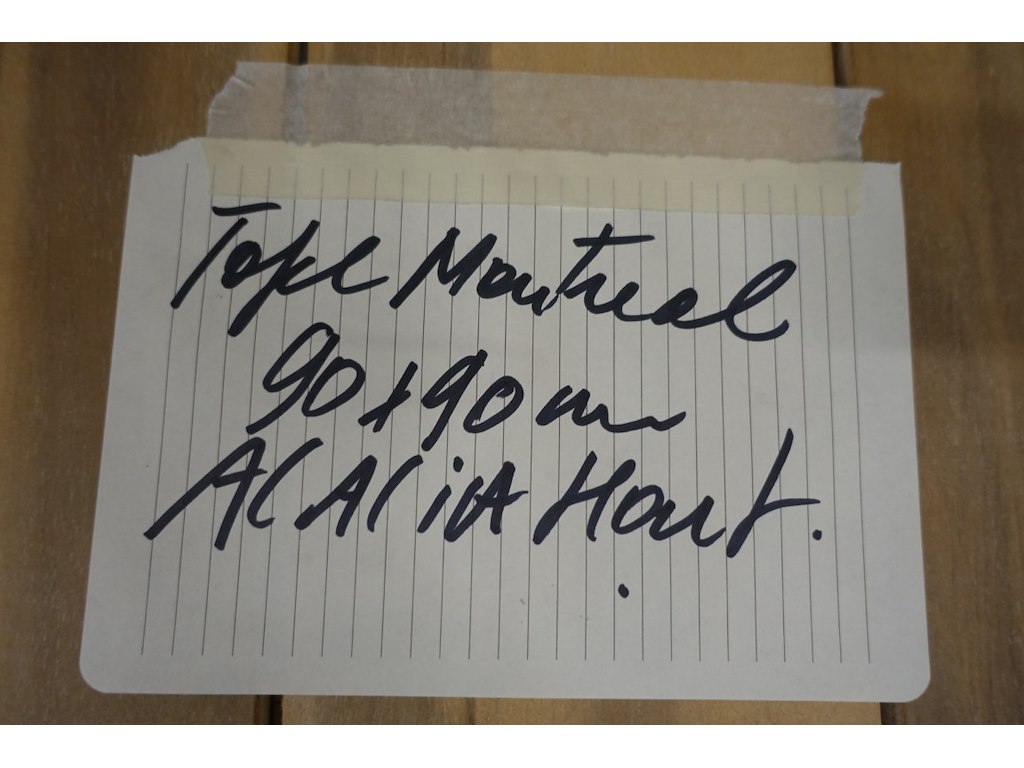 Tafel Montreal
90x90 cm
ACACiA Hout.